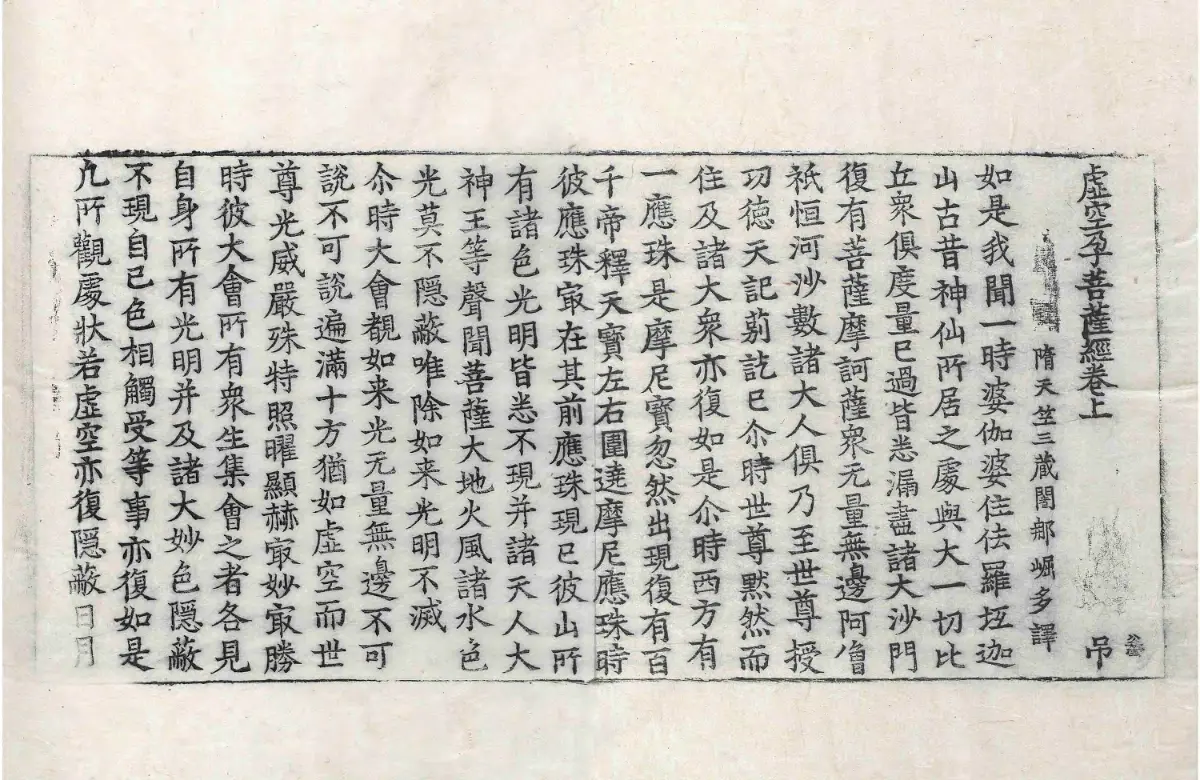 虛空孕菩薩經卷上 弔
隋天竺三藏闍那崛多譯
如是我聞一時婆伽婆住佉羅坻迦
山古昔神仙所居之處與大一切比
丘衆俱度量已過皆悉漏盡諸大沙門
復有菩薩摩訶薩衆无量無邊阿僧
祇恒河沙數諸大人俱乃至世尊授
功德天記莂訖已尒時世尊默然而
住及諸大衆亦復如是尒時西方有
一應珠是摩尼寶忽然出現復有百
千帝釋天寶左右圍遶摩尼應珠時
彼應珠㝡在其前應珠現已彼山所
有諸色光明皆悉不現并諸天人大
神王等聲聞菩薩大地火風諸水色
光莫不隱蔽唯除如来光明不滅
尒時大會覩如来光无量無邊不可
說不可說遍滿十方猶如虛空而世
尊光威嚴殊特照曜顯赫㝡妙㝡勝
時彼大會所有衆生集會之者各見
自身所有光明并及諸大妙色隱蔽
不現自已色相觸受等事亦復如是
凡所觀處狀若虛空亦復隱蔽日月